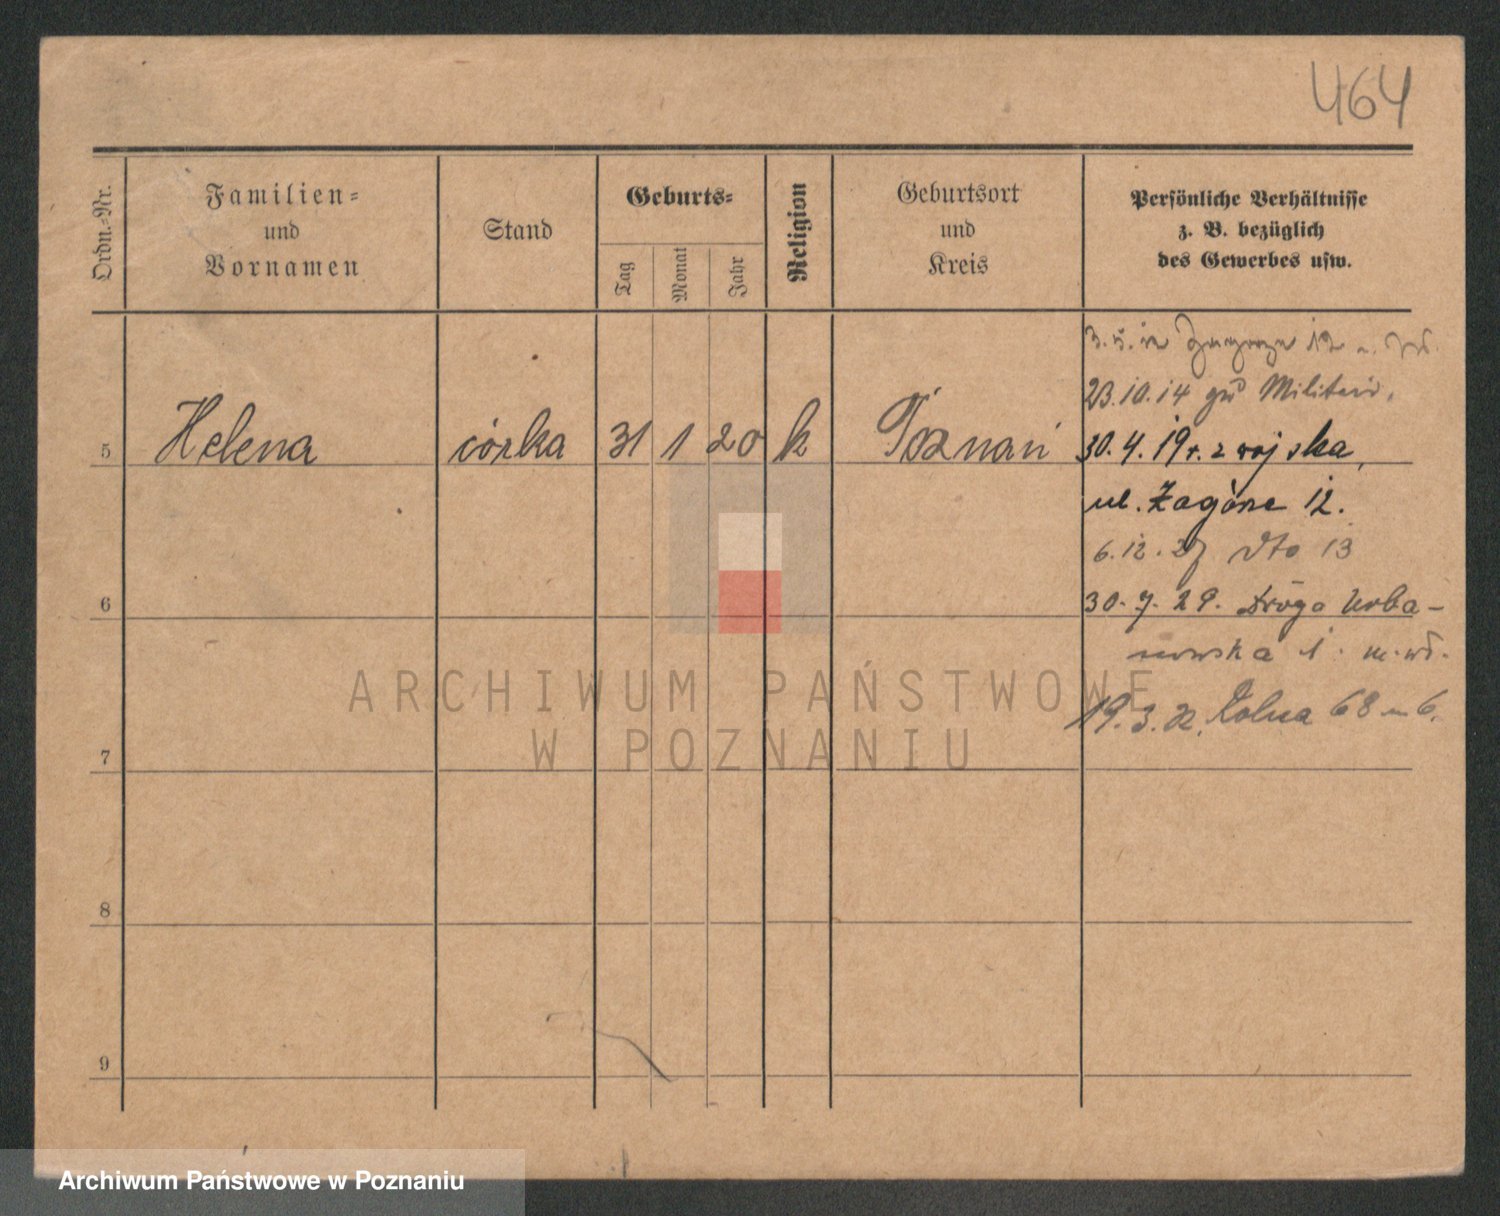 464
Ordn.=Nr.
Familien=
und
Vornamen
Stand
Geburts=
Tag
Monat
Jahr
Religion
Geburtsort
und
Kreis
Persönliche Verhältnisse
z. B. bezüglich
des Gewerbes usw.
5 Helena córka 31 1 20 k Poznań
23.10.14 Militär
30.4.19 r. z wojska,
ul. Zagórze 12.
6.12.27 dto 13
6
30.7.29. Droga Urba-
nowska 1
7
19.3.32. Rolna 68 m 6.
8
9
ARCHIWUM PAŃSTWOWE
W POZNANIU
Archiwum Państwowe w Poznaniu